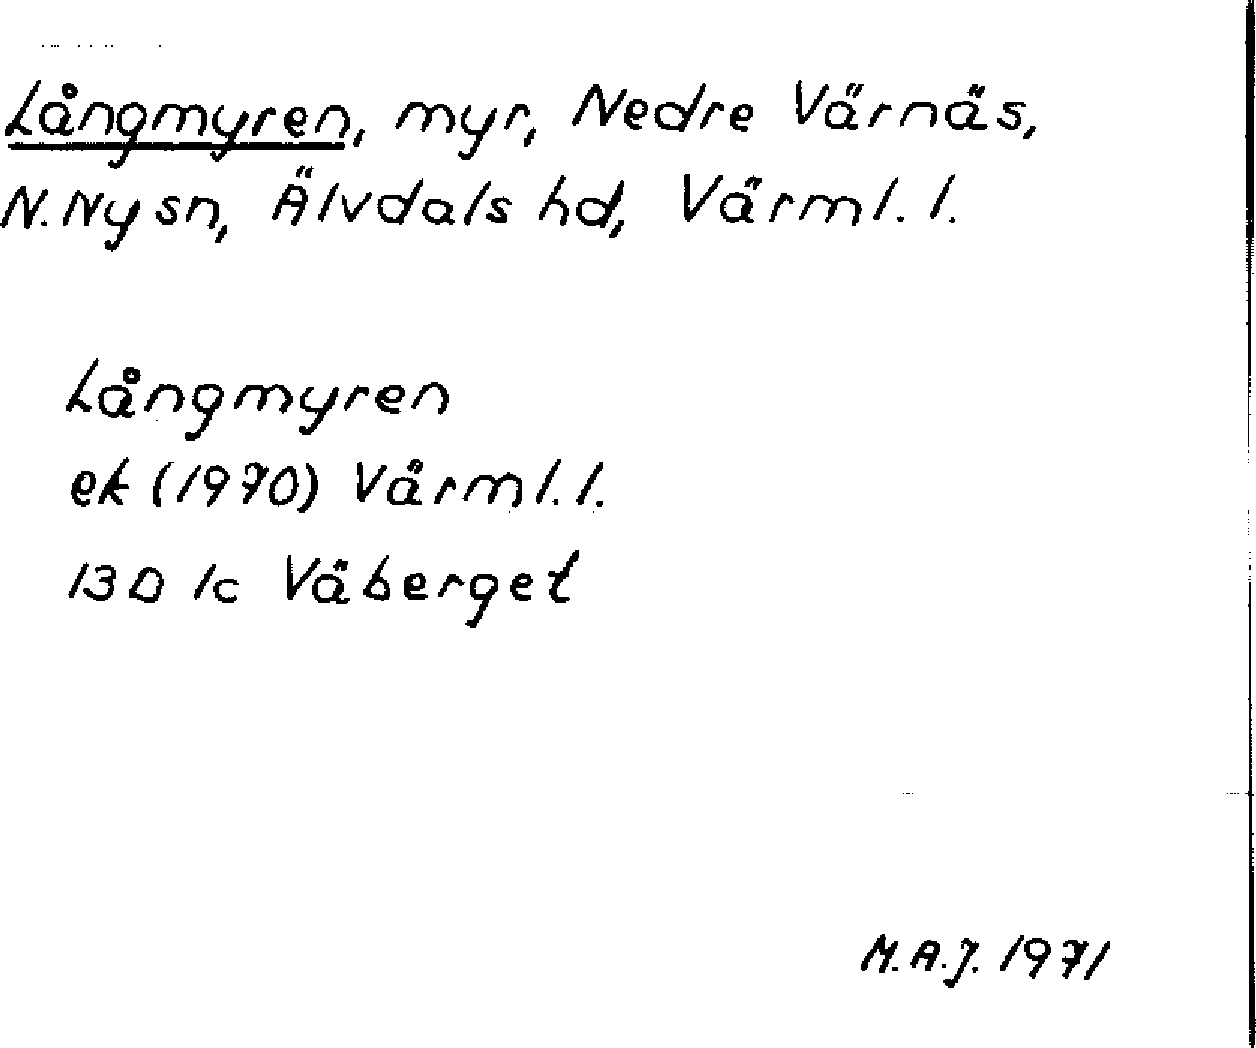 Långmyren, myr, Nedre Värnäs,
N. Ny sn, Älvdals hd, Värml. l.
Långmyren
ek (1970) Värml. l.
13D 1c Väberget
M.A.J. 1971